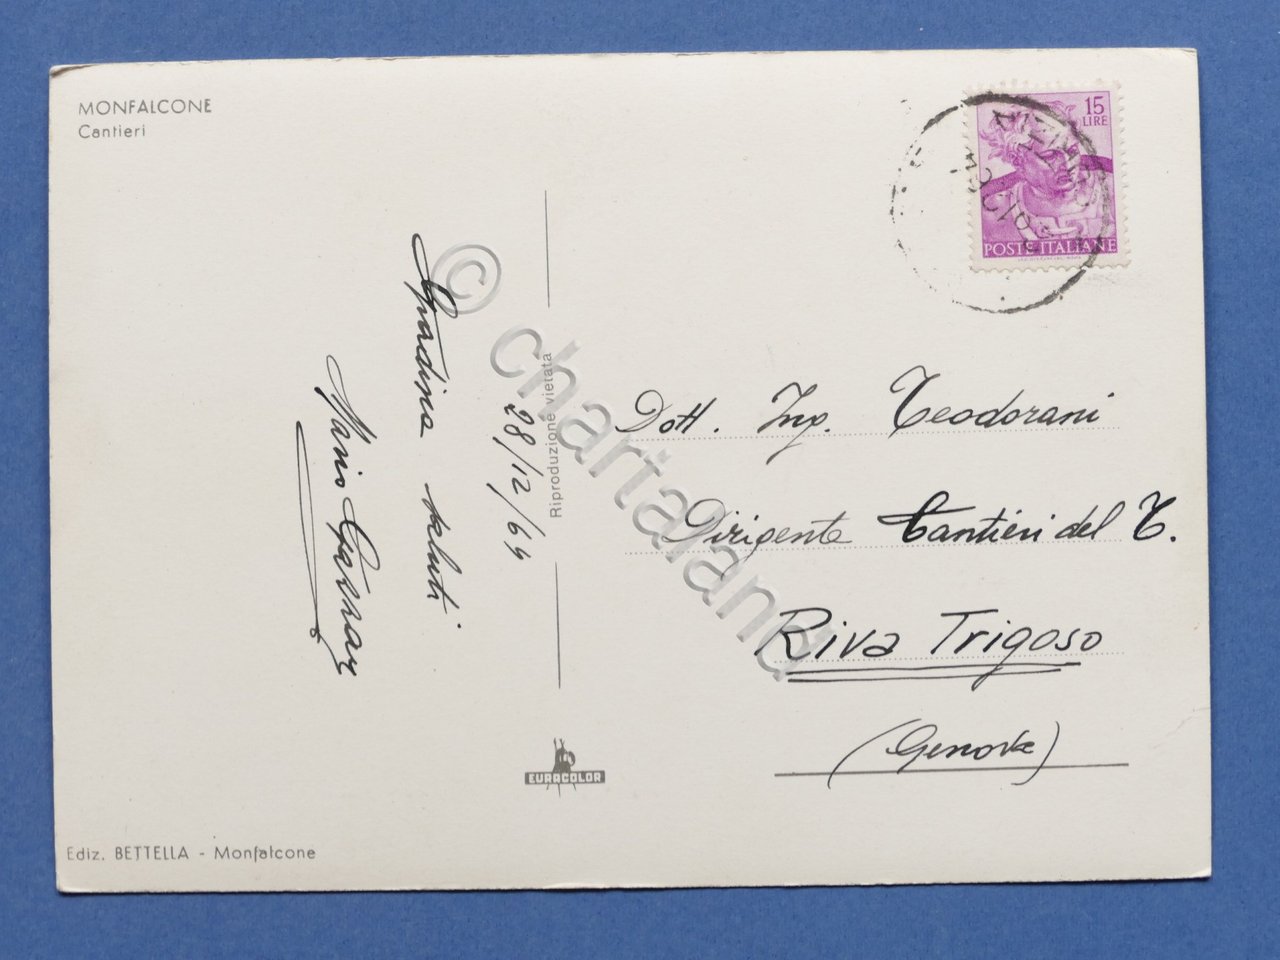 MONFALCONE
Cantieri
15
LIRE
POSTE ITALIANE
saluti
28/12/64
Riproduzione vietata
© chartaland
Dott. Ing. Teodorani
Dirigente Cantieri del T.
Riva Trigoso
(Genova)
EURACOLOR
Ediz. BETTELLA - Monfalcone
Mario